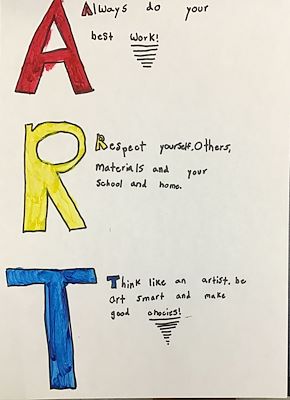 A
Always do your
best work!
R
Respect yourself, Others,
materials and your
school and home.
T
Think like an artist. be
art smart and make
good chocies!